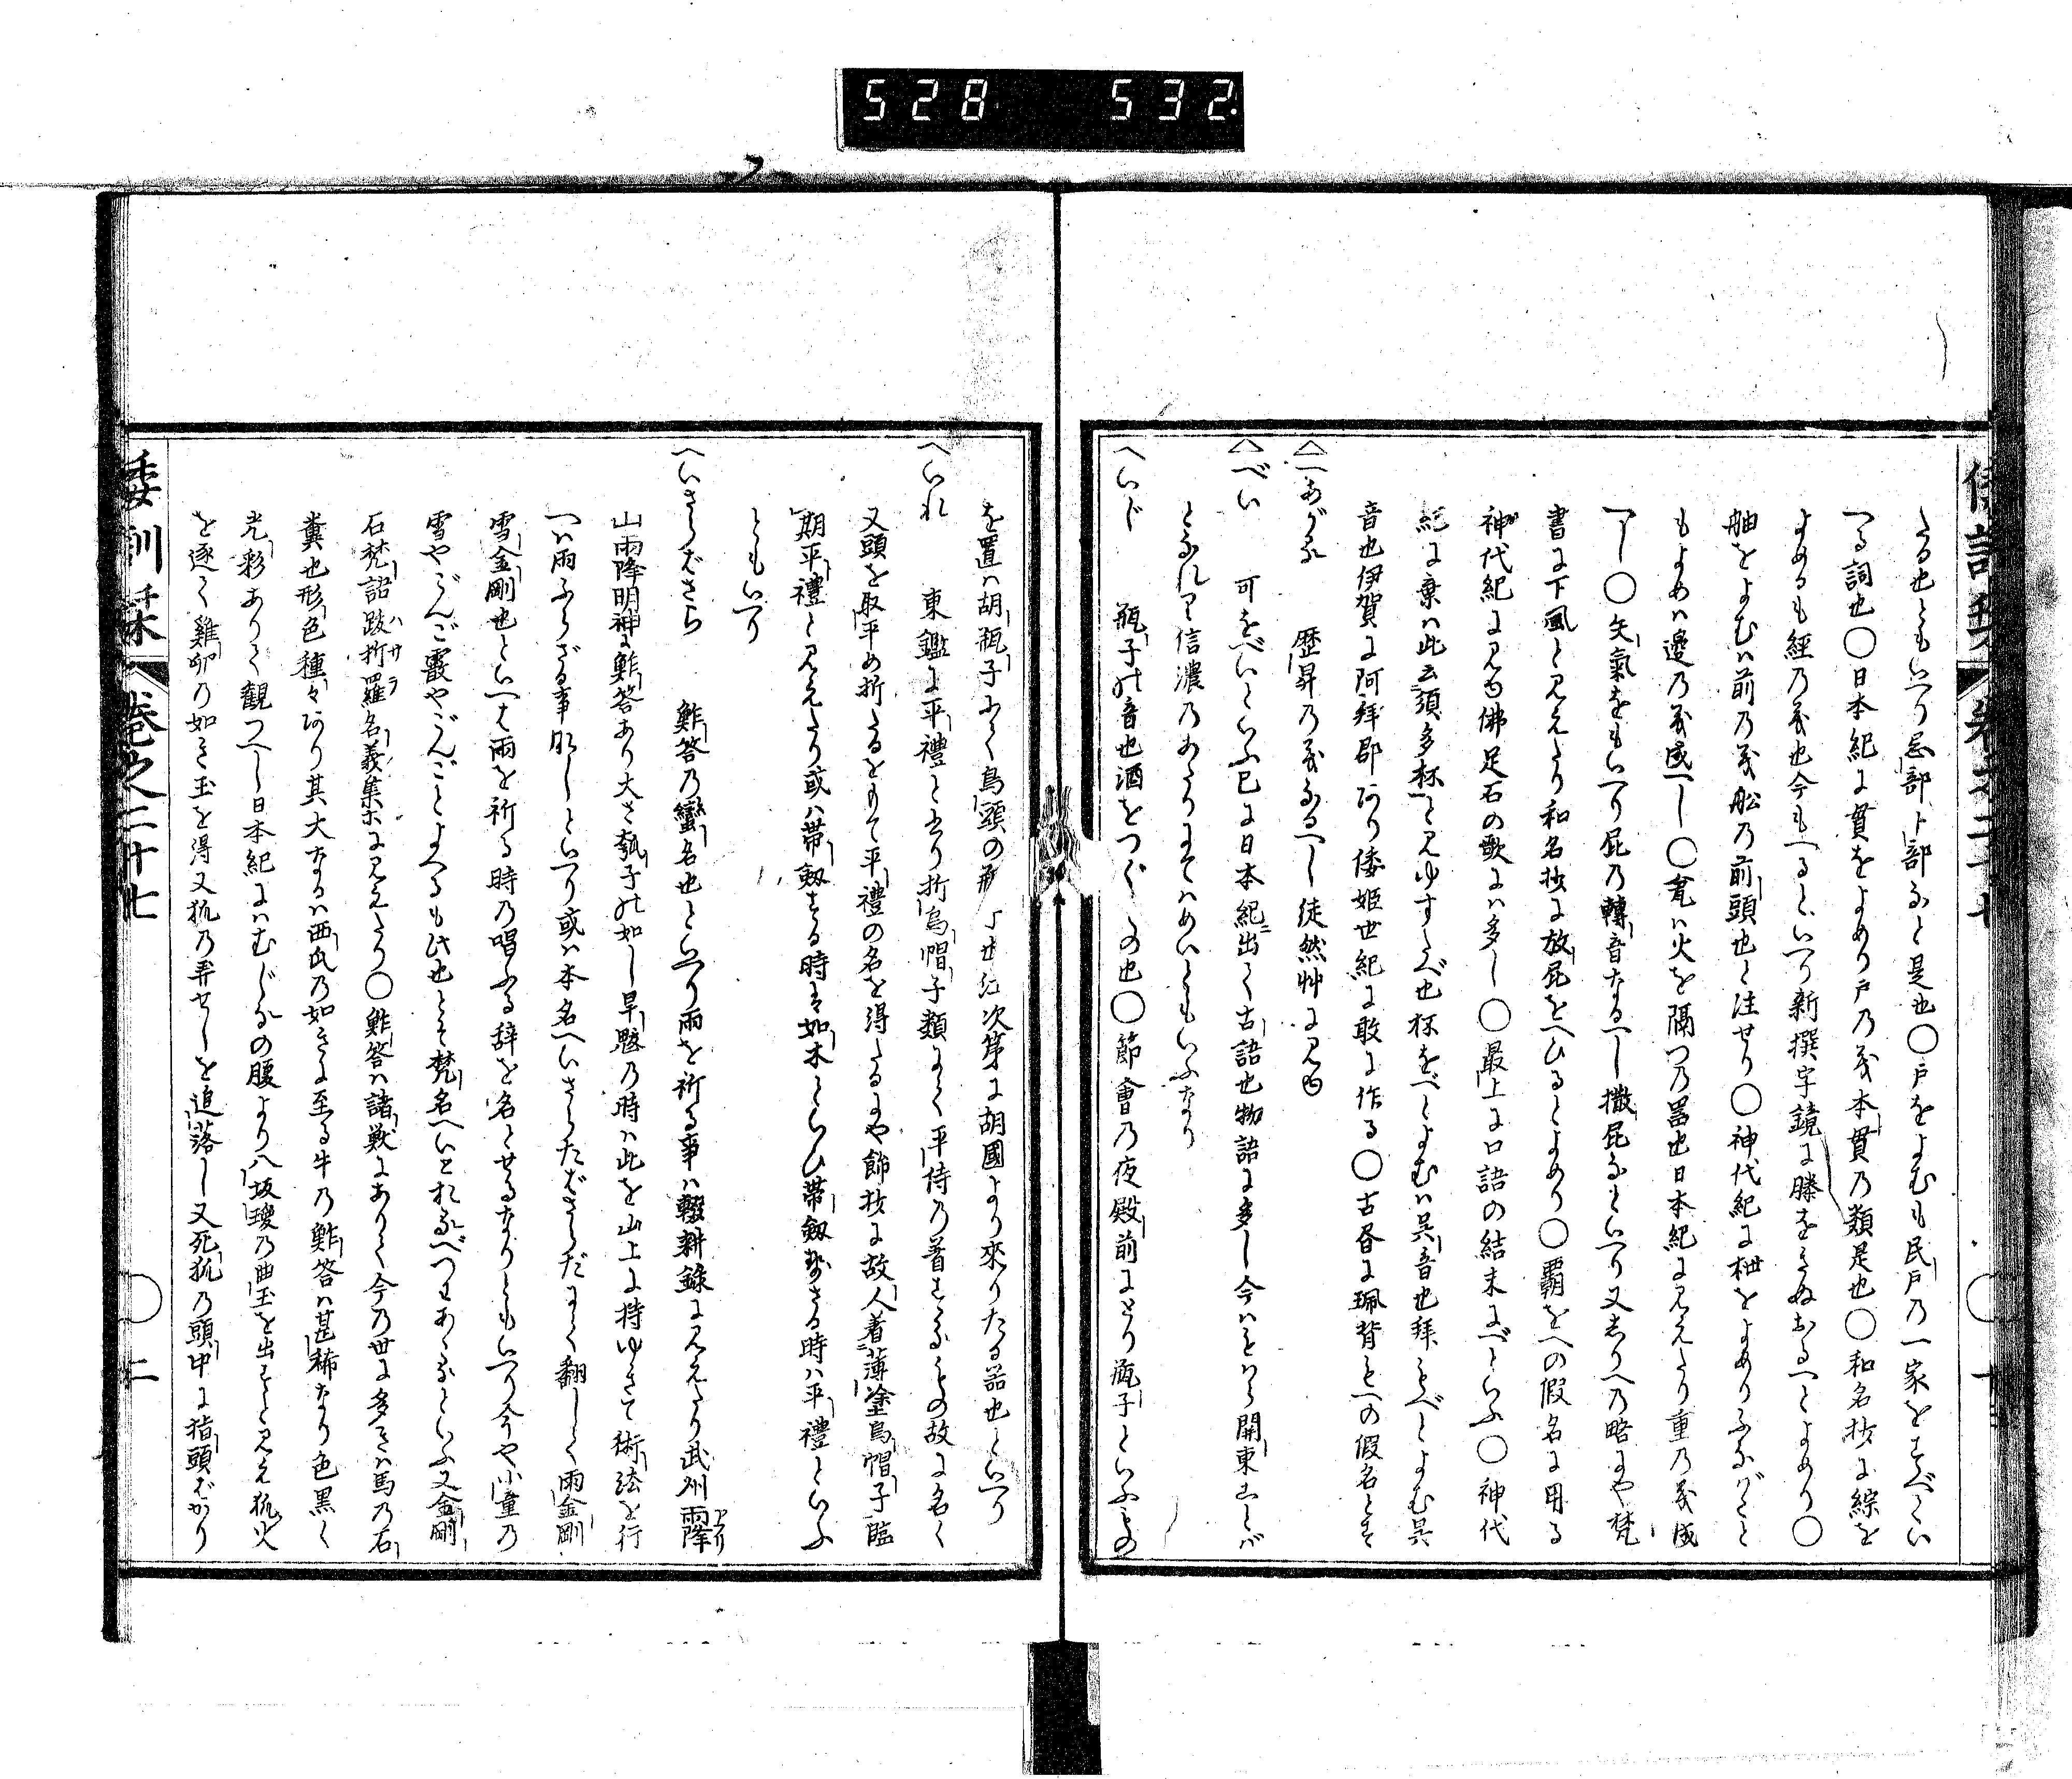 528 532
たる也ともいへり忌部卜部なと是也〇戸をよむも民戸乃一家をすべてい
へる詞也〇日本紀に貫をよめり戸乃義本貫乃類是也〇和名抄に綜を
よめるも經乃義也今もへるといへり新撰字鏡に縢をきぬおるへとよめり〇
舳をよむハ前乃義舩乃前頭也と注せり〇神代紀に枻をよめりふなばたと
もよめハ邊乃義成へし〇竃ハ火を隔つ乃畧也日本紀に見えたり重乃義成
へし〇矢氣をもいへり屁乃轉音なるへし撒屁なといへり又しりへ乃略にや梵
書に下風と見えたり和名抄に放屁をへひるとよめり〇覇をへの假名に用る
神代紀に見ゆ佛足石の歌にハ多し〇最上に口語の結末にべといふ〇神代
紀に棄ハ此云須多杯と見ゆすたべ也杯をべとよむハ呉音也拜をべとよむ呉
音也伊賀に阿拜郡あり倭姫世紀に敢に作る〇古昏に珮背をへの假名とす
△へあがる　歴昇乃義なるへし徒然艸に見ゆ
△べい　可をべいといふ已に日本紀に出て古語也物語に多し今ハもはら關東ことば
となれり信濃乃あたりにてハめいともいふなり
へいじ　瓶子の音也酒をつぐもの也〇節會乃夜殿前にとり瓶子といふもの
を置ハ胡瓶子にて鳥頭の形 次第に胡國より來りたる器也といへり
へいれ　東鑑に平禮と書り折烏帽子類にて平侍乃着するもの故に名く
又頭を取平め折たるをもて平禮の名を得たるにや飾抄に故人着薄塗烏帽子臨
期平禮と見えたり或ハ帶剱する時を如木といひ帶剱せさる時ハ平禮といふ
ともいへり
へいさらばさら　鮓荅乃蠻名也といへり雨を祈る事ハ輟耕録に見えたり武州雨降
山雨降明神に鮓荅あり大さ瓠子の如し旱魃乃時ハ此を山上に持ゆきて術法を行
へハ雨ふらざる事なしといへり或ハ本名へいさらたばさらだにて翻して雨金剛
雪金剛也といへハ雨を祈る時乃唱ふる辞を名とせるなりともいへり今や小童乃
雪やごんご霰やごんごとよべるも此也とそ梵名へいとれるべつもあるといふ又金剛
石梵語跋折羅名義集に見えたり〇鮓荅ハ諸獸にありて今乃世に多きハ馬乃石
糞也形色種々あり其大なるハ西瓜乃如きに至る牛乃鮓荅ハ甚稀なり色黒く
光彩ありて観つへし日本紀にハむじなの腹より八坂瓊乃曲玉を出すと見え狐火
を逐て雞卵乃如き玉を得又狐乃弄せしを追落し又死狐乃頭中に指頭ばかり
倭訓栞　巻之二十七　二